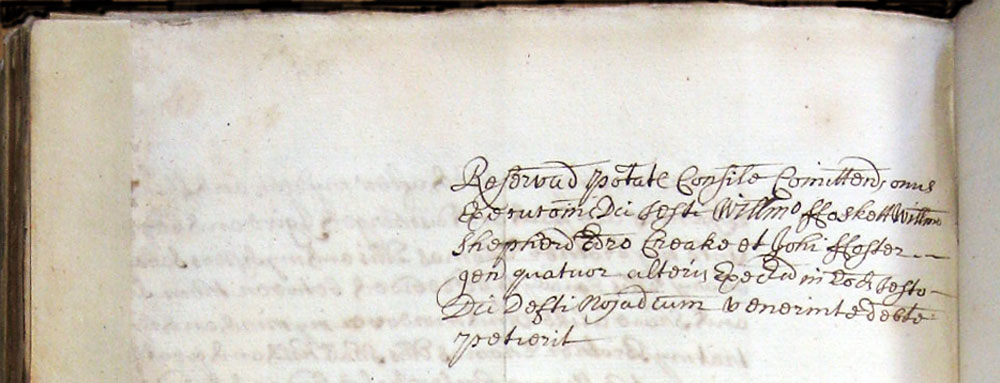 Reservad potate Consile Comittend onus
Executom Dci testi Willmo ffoskett Willmo
Shepherd Edro Creake et Johi ffoster
gen quatuor alteris Execut in eod testo
Dci Defti Noiat cum venerint et debte
petierit